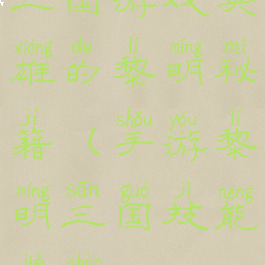 三国游戏英
xióng de lí míng mì
雄的黎明秘
jí shǒu yóu lí
籍(手游黎
míng sān guó jì néng
明三国技能